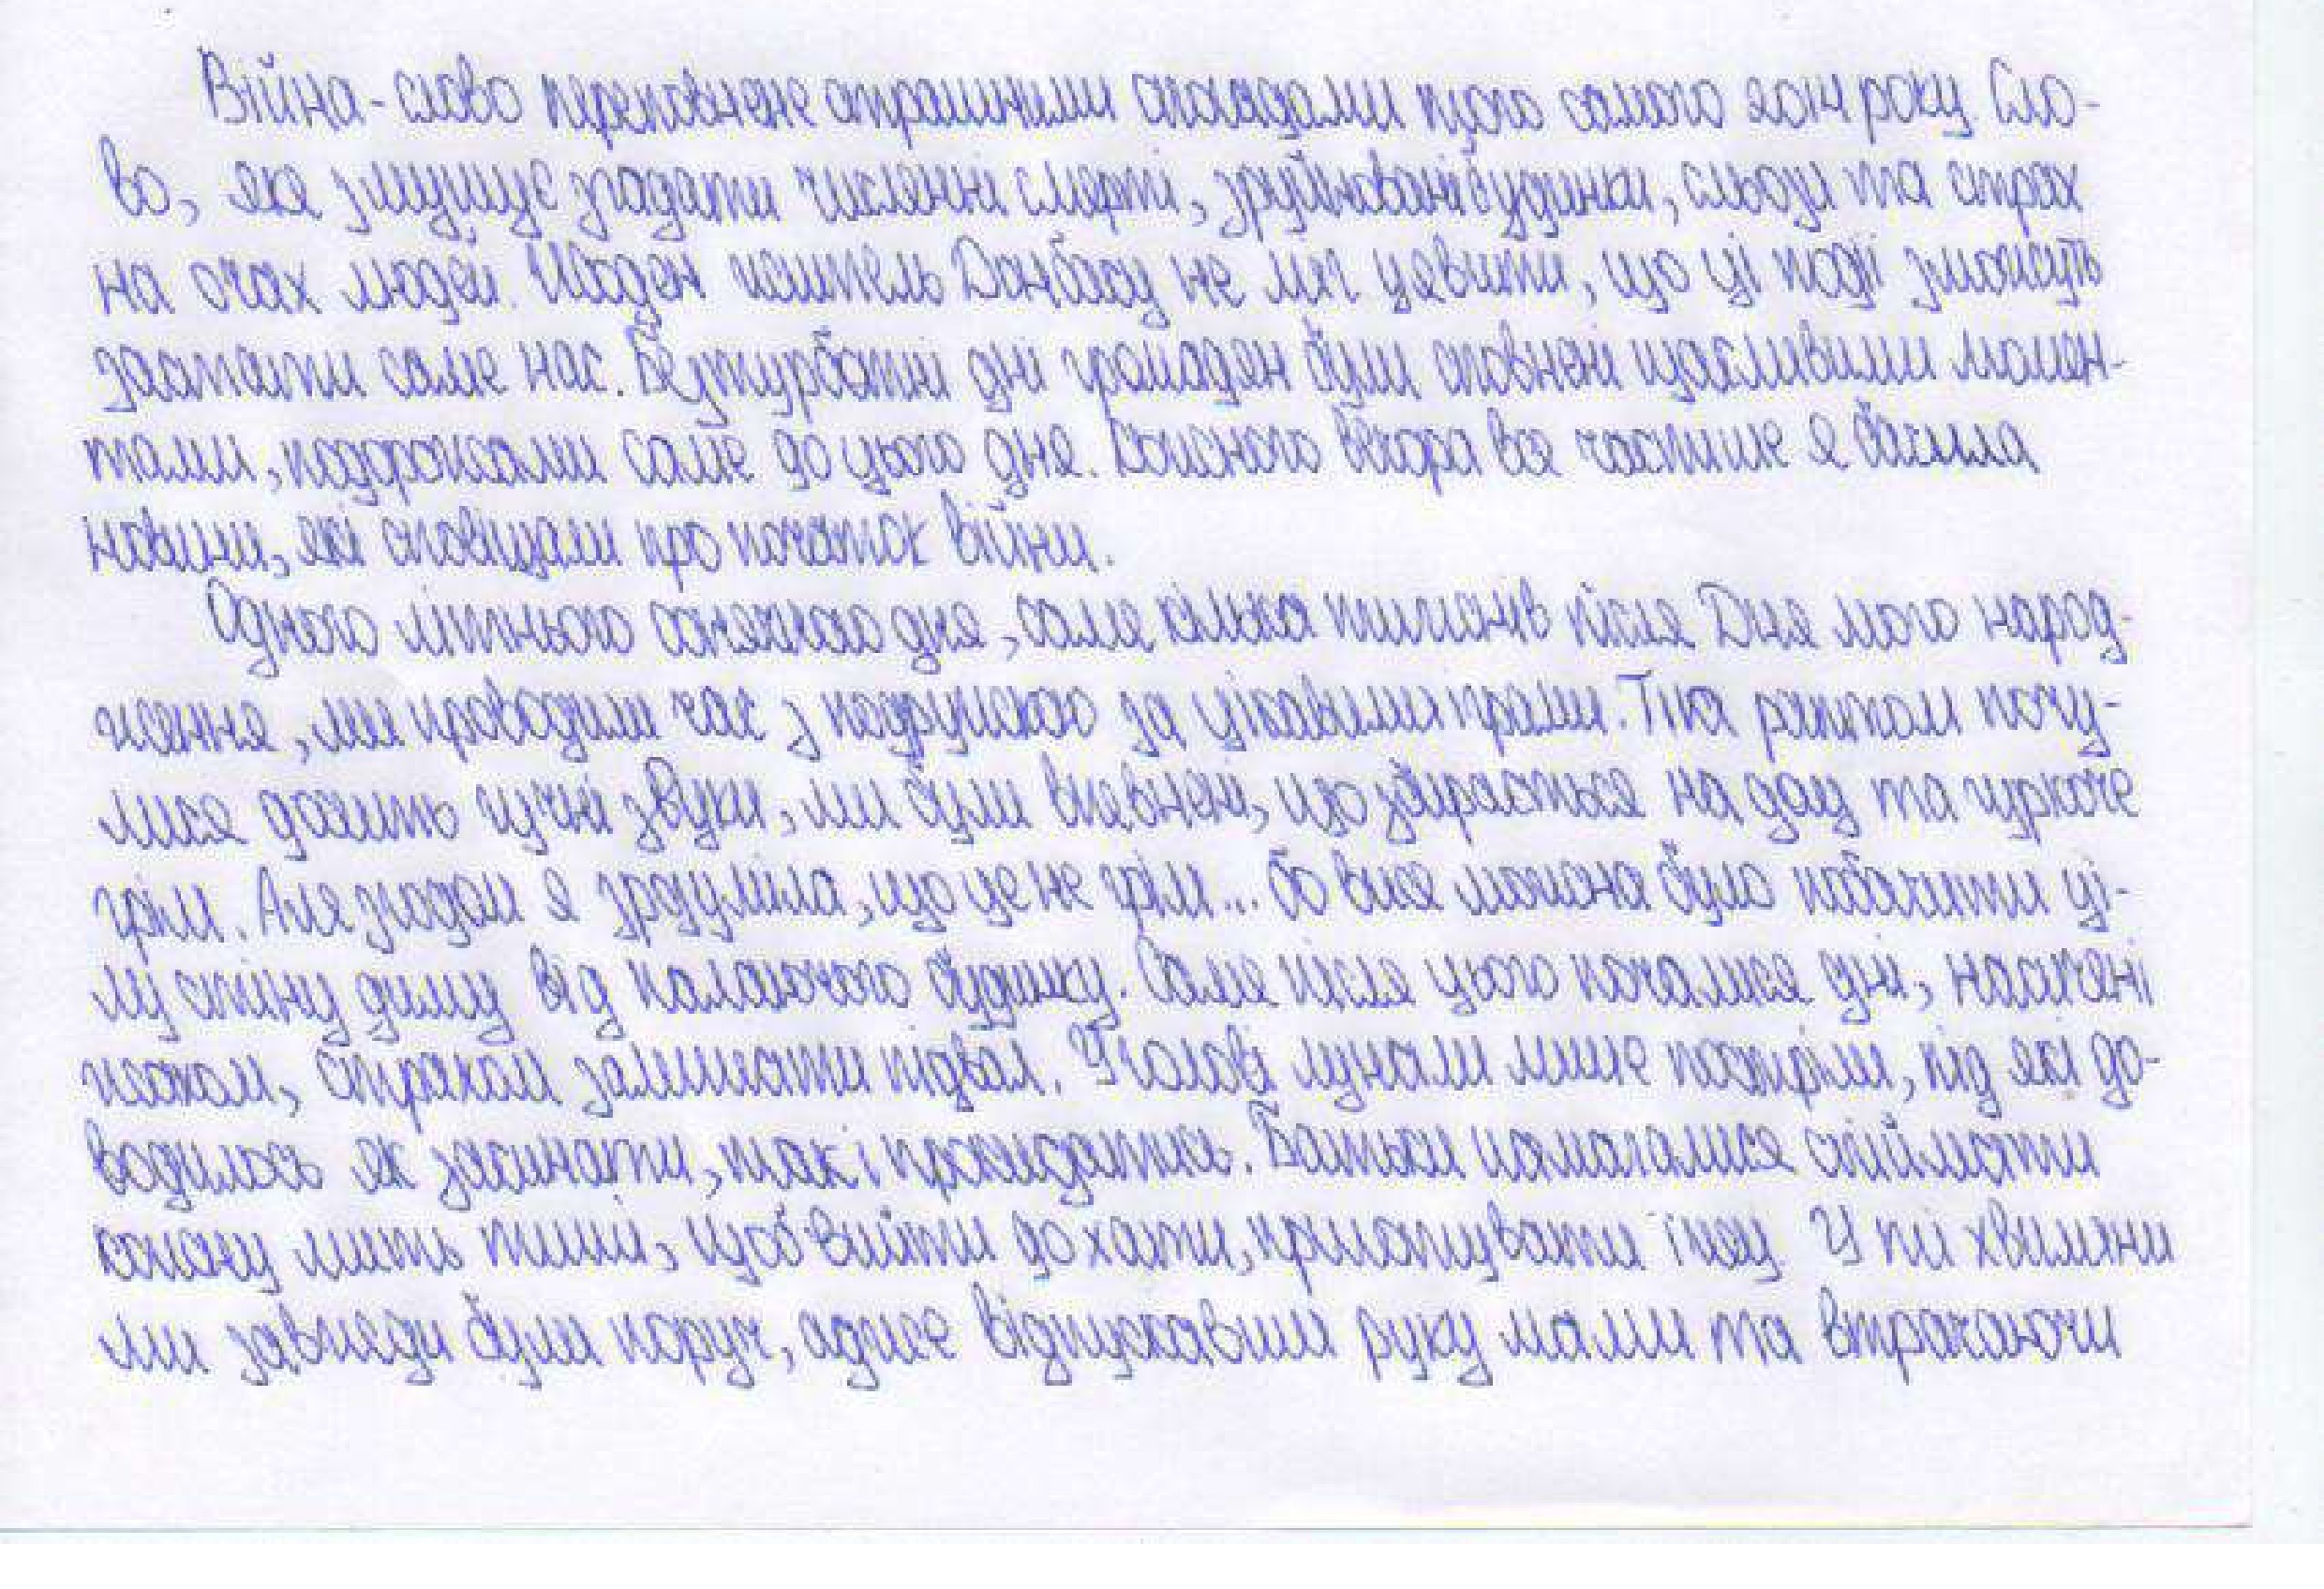 Війна - слово переповнене страшними спогадами того самого 2014 року. Сло-
во, яке змушує згадати численні смерті, зруйновані будинки, сльози та страх
на очах людей. Жоден житель Донбасу не міг уявити, що ці події зможуть
застати саме нас. Безтурботні дні громадян були сповнені щасливими момен-
тами, подорожами саме до цього дня. Кожного вечора все частіше я бачила
новини, які сповіщали про початок війни.
Одного літнього сонячного дня, саме кілька тижнів після Дня мого народ-
ження, ми проводили час з подружкою за цікавими іграми. Тіка раптом почу-
лися досить гучні звуки, ми були впевнені, що збирається на дощ та гуркоче
грім. Але згодом я зрозуміла, що це не грім... бо вже можна було побачити ці-
лу стіну диму від палаючого будинку. Саме після цього почалися дні, насичені
жахом, страхом залишати підвал. У голові лунали лише постріли, під які до-
водилось як засинати, так і прокидатись. Батьки намагалися спіймати
кожну мить тиші, щоб вийти до хати, приготувати їжу. У ті хвилини
ми завжди були поруч, адже відпускавши руку мами та втрачаючи